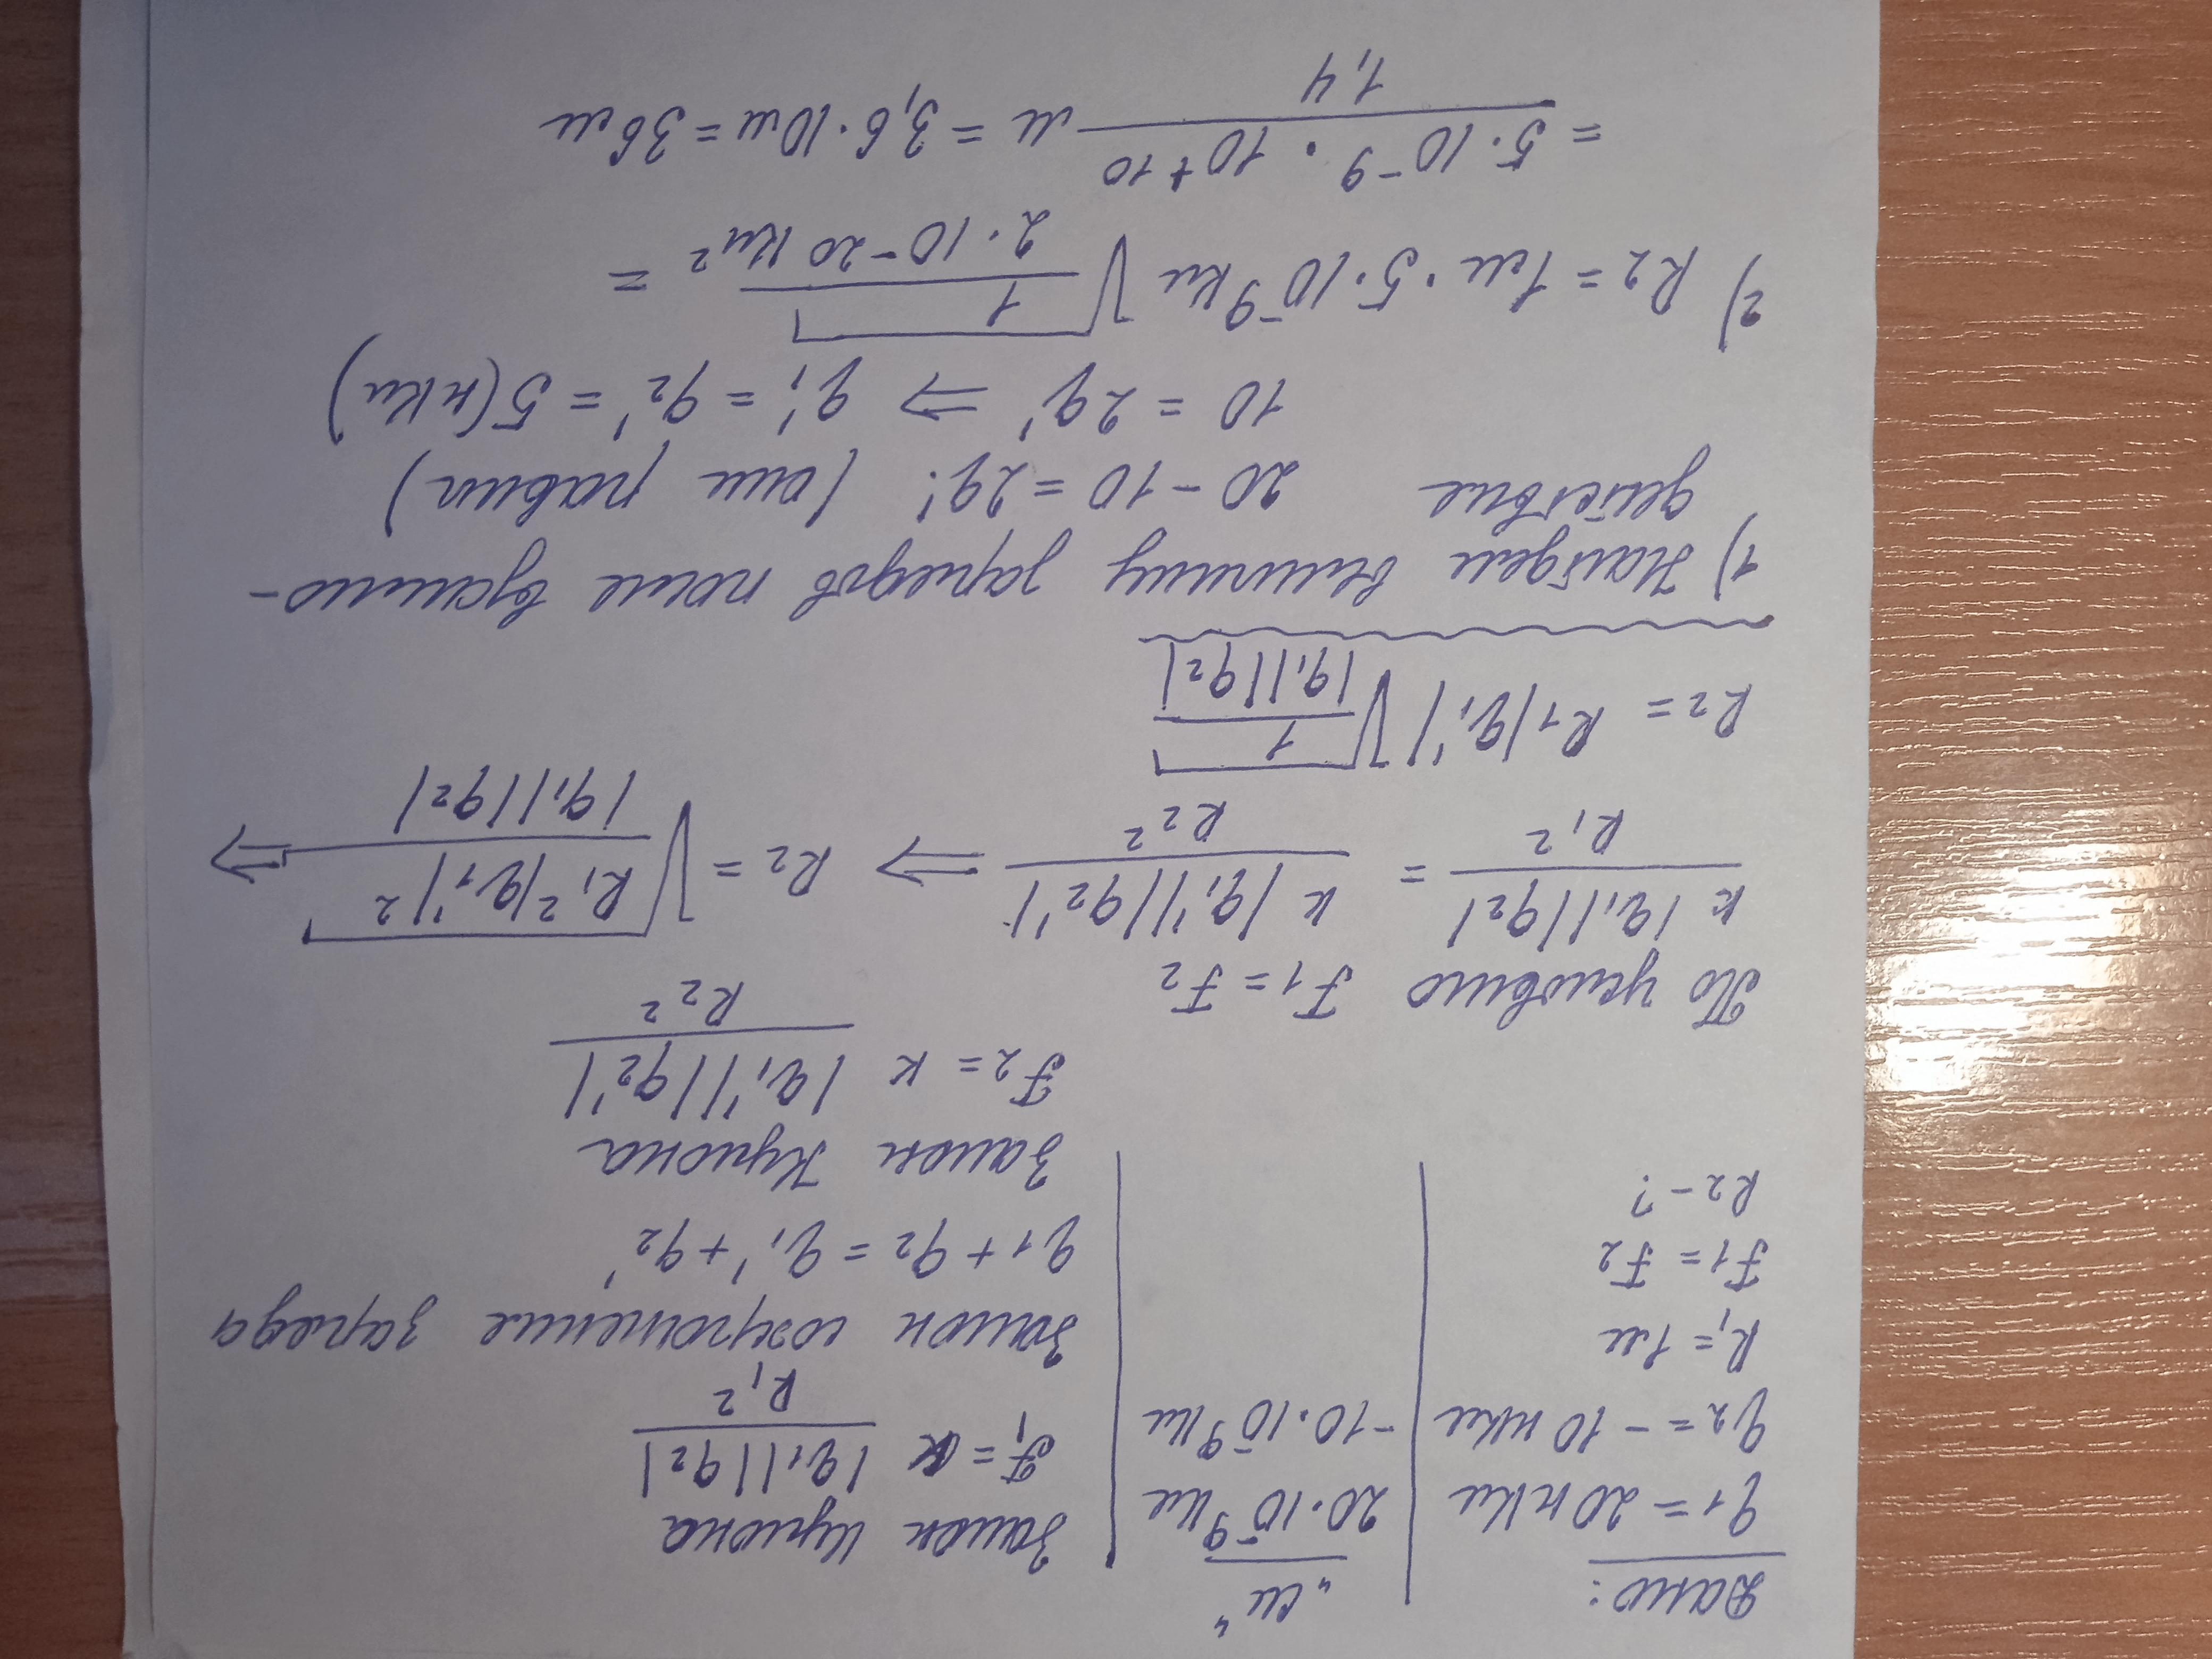 Дано:
q1 = 20 нКл
q2 = - 10 нКл
R1 = 1м
F1 = F2
R2 - ?
"СИ"
20·10⁻⁹Кл
-10·10⁻⁹Кл
Закон Кулона
F1 = k |q1||q2| / R1²
Закон сохронение заряда
q1 + q2 = q1' + q2'
Закон Кулона
F2 = k |q1'||q2'| / R2²
По условию F1 = F2
k|q1||q2| / R1² = k|q1'||q2'| / R2² => R2 = √(R1²|q1'|² / |q1||q2|) =>
R2 = R1|q1'| √(1 / |q1||q2|)
1) Найдем величину зарядов после взаимо-
действие 20 - 10 = 2q' (они равны)
10 = 2q' => q1' = q2' = 5(нКл)
2) R2 = 1м · 5·10⁻⁹Кл √(1 / 2·10⁻²⁰ Кл²) =
= 5·10⁻⁹ · 10⁺¹⁰ / 1,4 м = 3,6·10м = 36м